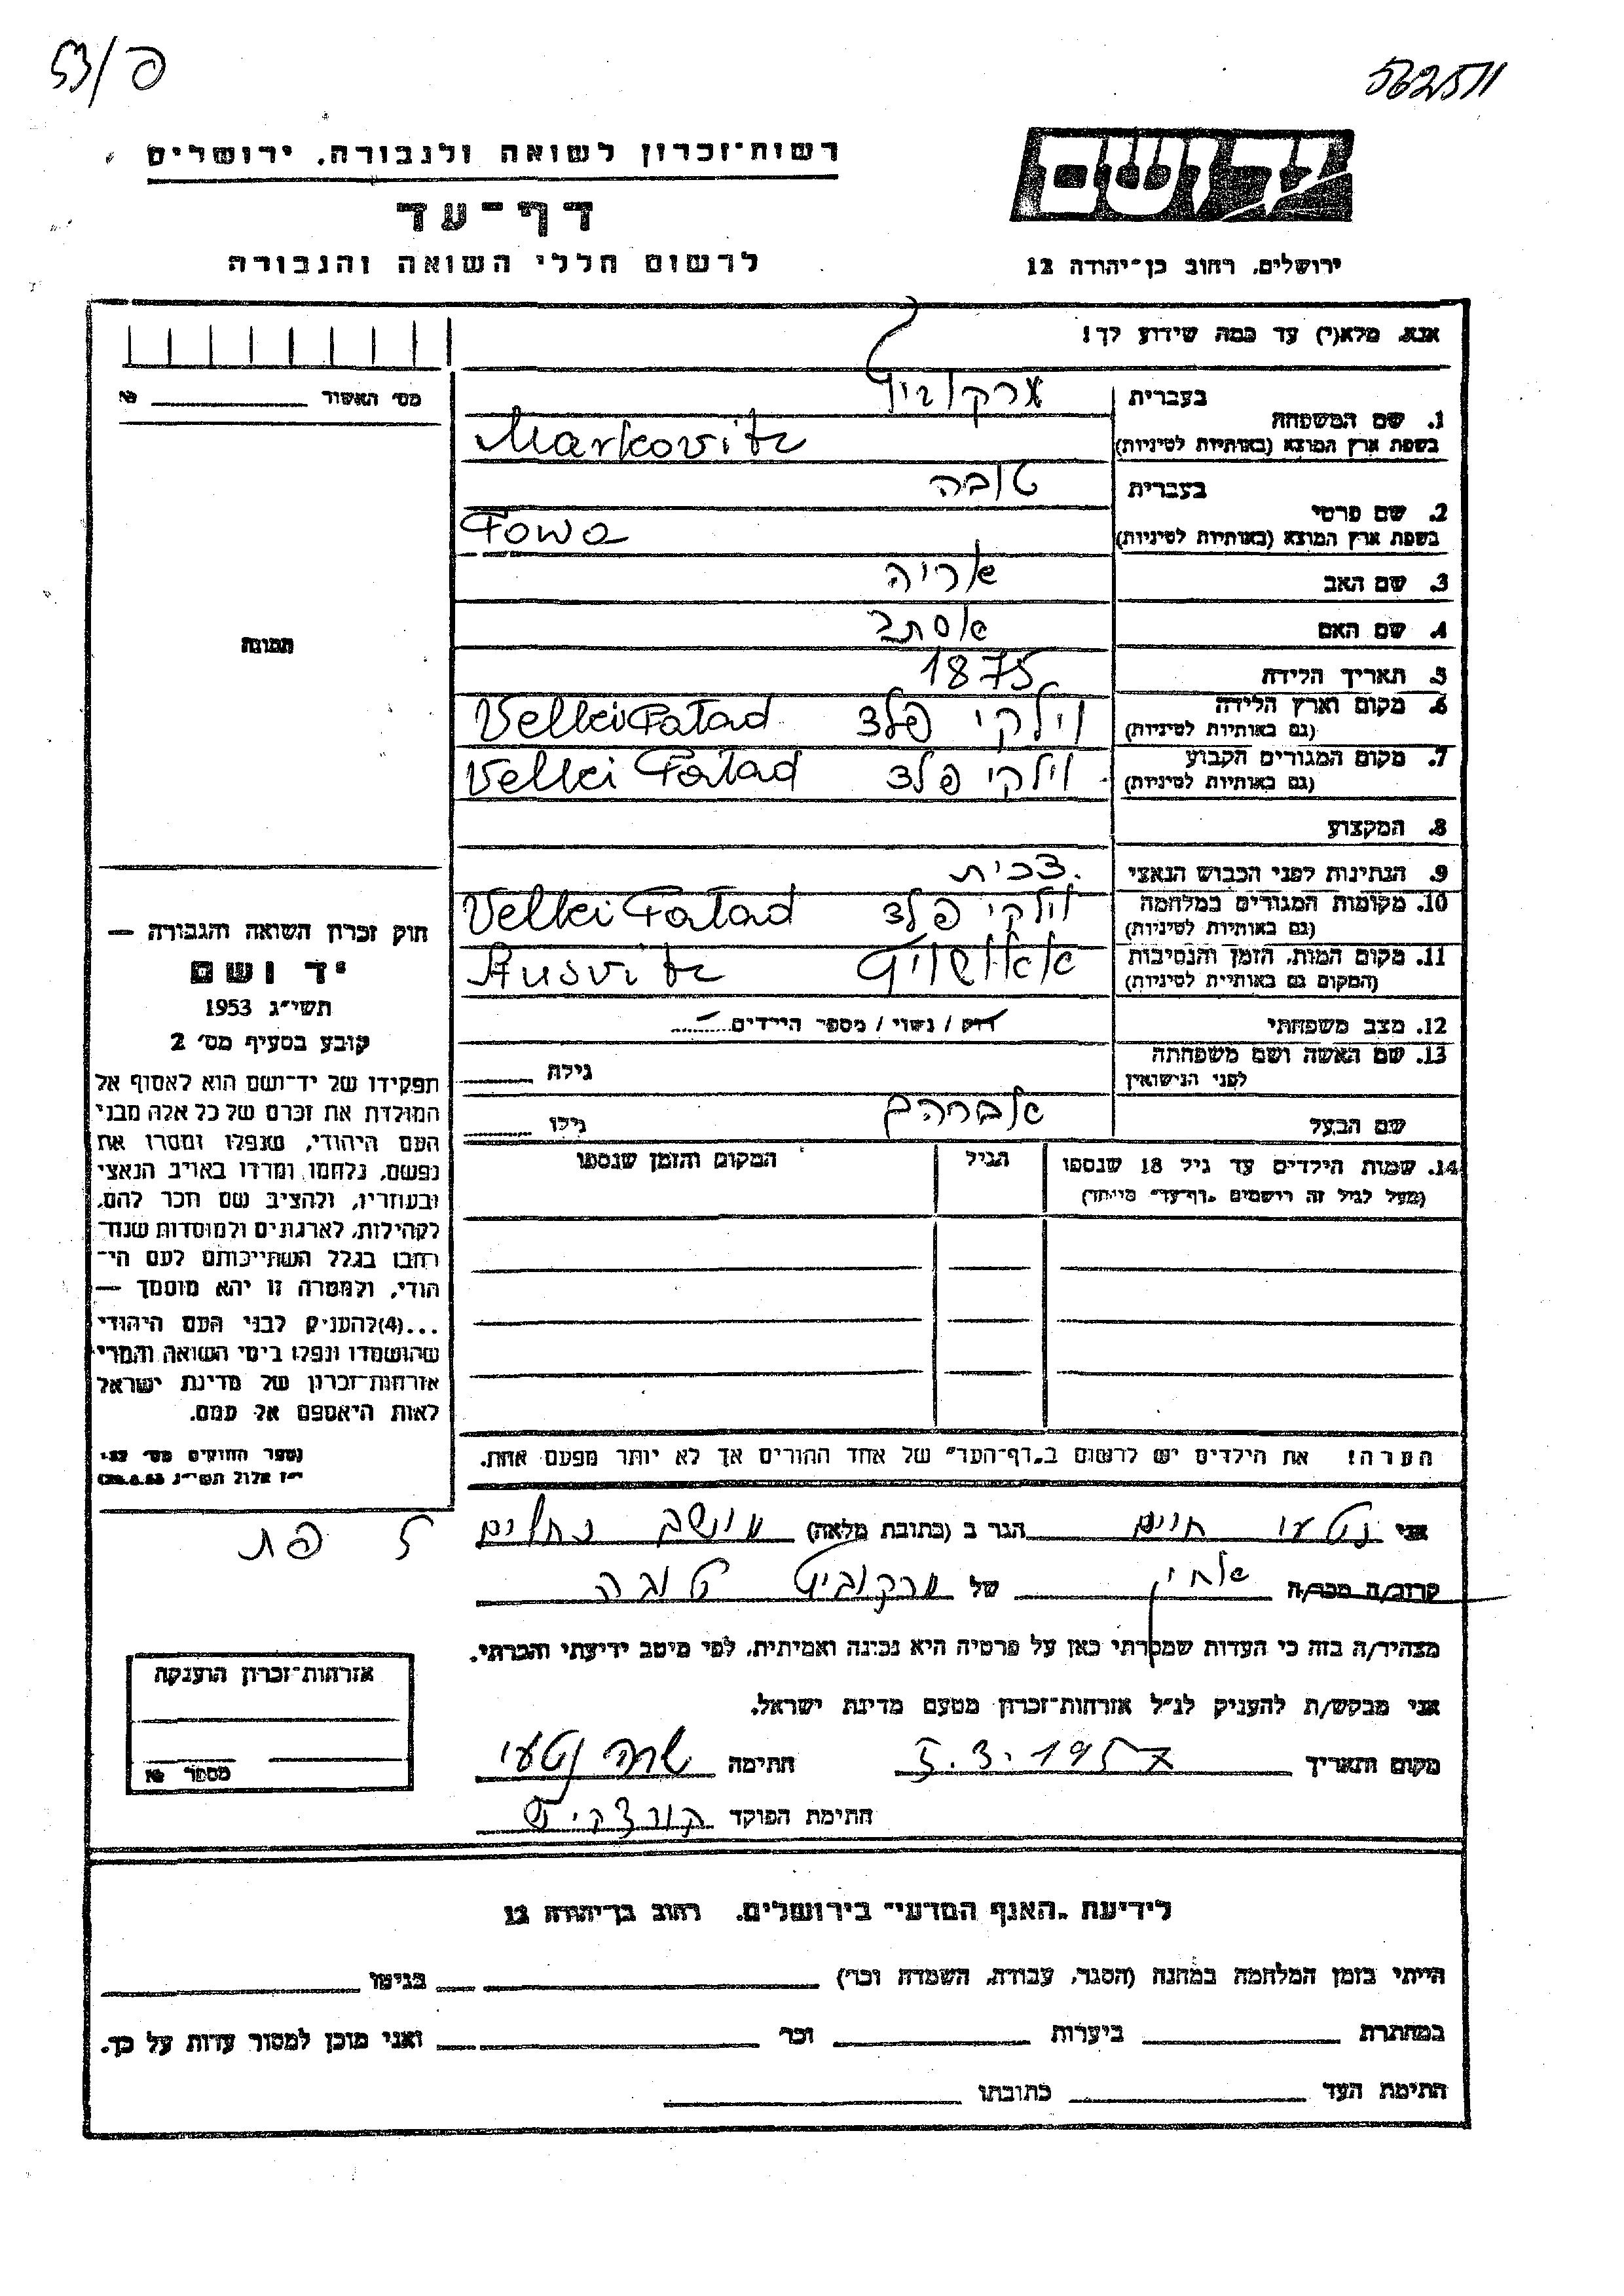 פ/53
רשות־זכרון לשואה ולגבורה, ירושלים
דף-עד
לרשום חללי השואה והגבורה
יד ושם
ירושלים, רחוב בן־יהודה 12
אנא, מלא(י) עד כמה שידוע לך!
מס׳ האשור №
1. שם המשפחה בעברית מרקוביץ
בשפת ארץ המוצא (באותיות לטיניות) Markovitz
2. שם פרטי בעברית טובה
בשפת ארץ המוצא (באותיות לטיניות) Towa
3. שם האב אריה
4. שם האם אסתר
5. תאריך הלידה 1875
6. מקום וארץ הלידה (גם באותיות לטיניות) וילקי פלד Velki Falad
7. מקום המגורים הקבוע (גם באותיות לטיניות) וילקי פלד Velki Falad
8. המקצוע
9. הנתינות לפני הכבוש הנאצי צכית
10. מקומות המגורים במלחמה (גם באותיות לטיניות) וילקי פלד Velki Falad
11. מקום המות, הזמן והנסיבות (המקום גם באותיות לטיניות) אאושויץ Ausvitz
12. מצב משפחתי רוק / נשוי / מספר הילדים
13. שם האשה ושם משפחתה לפני הנישואין גילה
שם הבעל אברהם גילו
14. שמות הילדים עד גיל 18 שנספו (מעל לגיל זה רושמים „דף־עד״ מיוחד) הגיל המקום והזמן שנספו
תמונה
חוק זכרון השואה והגבורה —
יד ושם
תשי״ג 1953
קובע בסעיף מס׳ 2
תפקידו של יד־ושם הוא לאסוף אל
המולדת את זכרם של כל אלה מבני
העם היהודי, שנפלו ומסרו את
נפשם, נלחמו ומרדו באויב הנאצי
ובעוזריו, ולהציב שם וזכר להם,
לקהילות, לארגונים ולמוסדות שנח־
רבו בגלל השתייכותם לעם הי־
הודי, ולמטרה זו יהא מוסמך —
...(4)להעניק לבני העם היהודי
שהושמדו ונפלו בימי השואה והמרי
אזרחות־זכרון של מדינת ישראל
לאות היאספם אל עמם.
(ספר החוקים מס׳ 132
י״ז אלול תשי״ג 28.8.53)
הערה! את הילדים יש לרשום ב„דף־העד״ של אחד ההורים אך לא יותר מפעם אחת.
אני נטעי חיים הגר ב (כתובת מלאה) מושב נחלים
קרוב/ה מכר/ה של מרקוביץ טובה
מצהיר/ה בזה כי העדות שמסרתי כאן על פרטיה היא נכונה ואמיתית, לפי מיטב ידיעתי והכרתי.
אני מבקש/ת להעניק לנ״ל אזרחות־זכרון מטעם מדינת ישראל.
מקום ותאריך 5.3.1957 חתימה שרה נטעי
חתימת הפוקד
אזרחות־זכרון הוענקה
מספר №
לידיעת „האגף המדעי״ בירושלים, רחוב בן־יהודה 12
הייתי בזמן המלחמה במחנה (הסגר, עבודה, השמדה וכו׳) בגיטו
במחתרת ביערות וכו׳ ואני מוכן למסור עדות על כך.
חתימת העד כתובתו